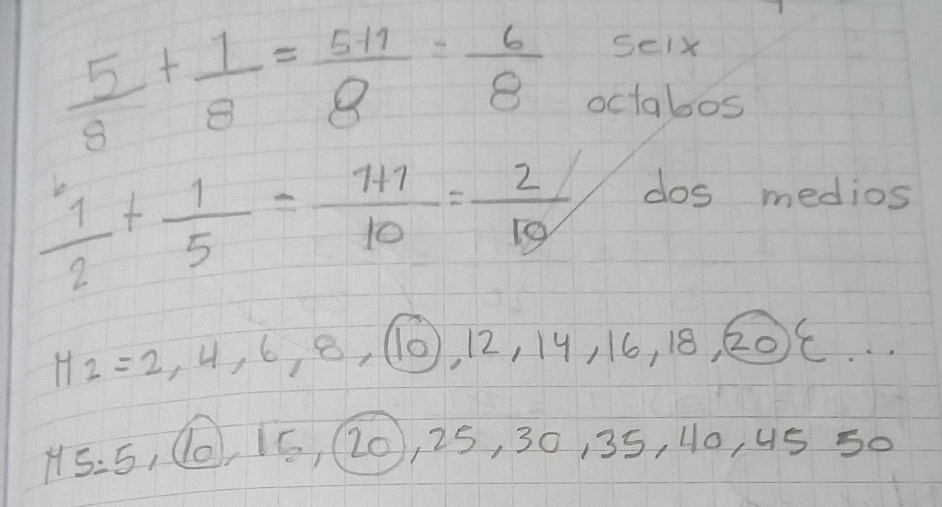 5/8 + 1/8 = 5+1/8 = 6/8 seix octabos
1/2 + 1/5 = 1+1/10 = 2/10 dos medios
M2=2, 4, 6, 8, 10, 12, 14, 16, 18, 20 { ...
M5=5, 10, 15, 20, 25, 30, 35, 40, 45 50